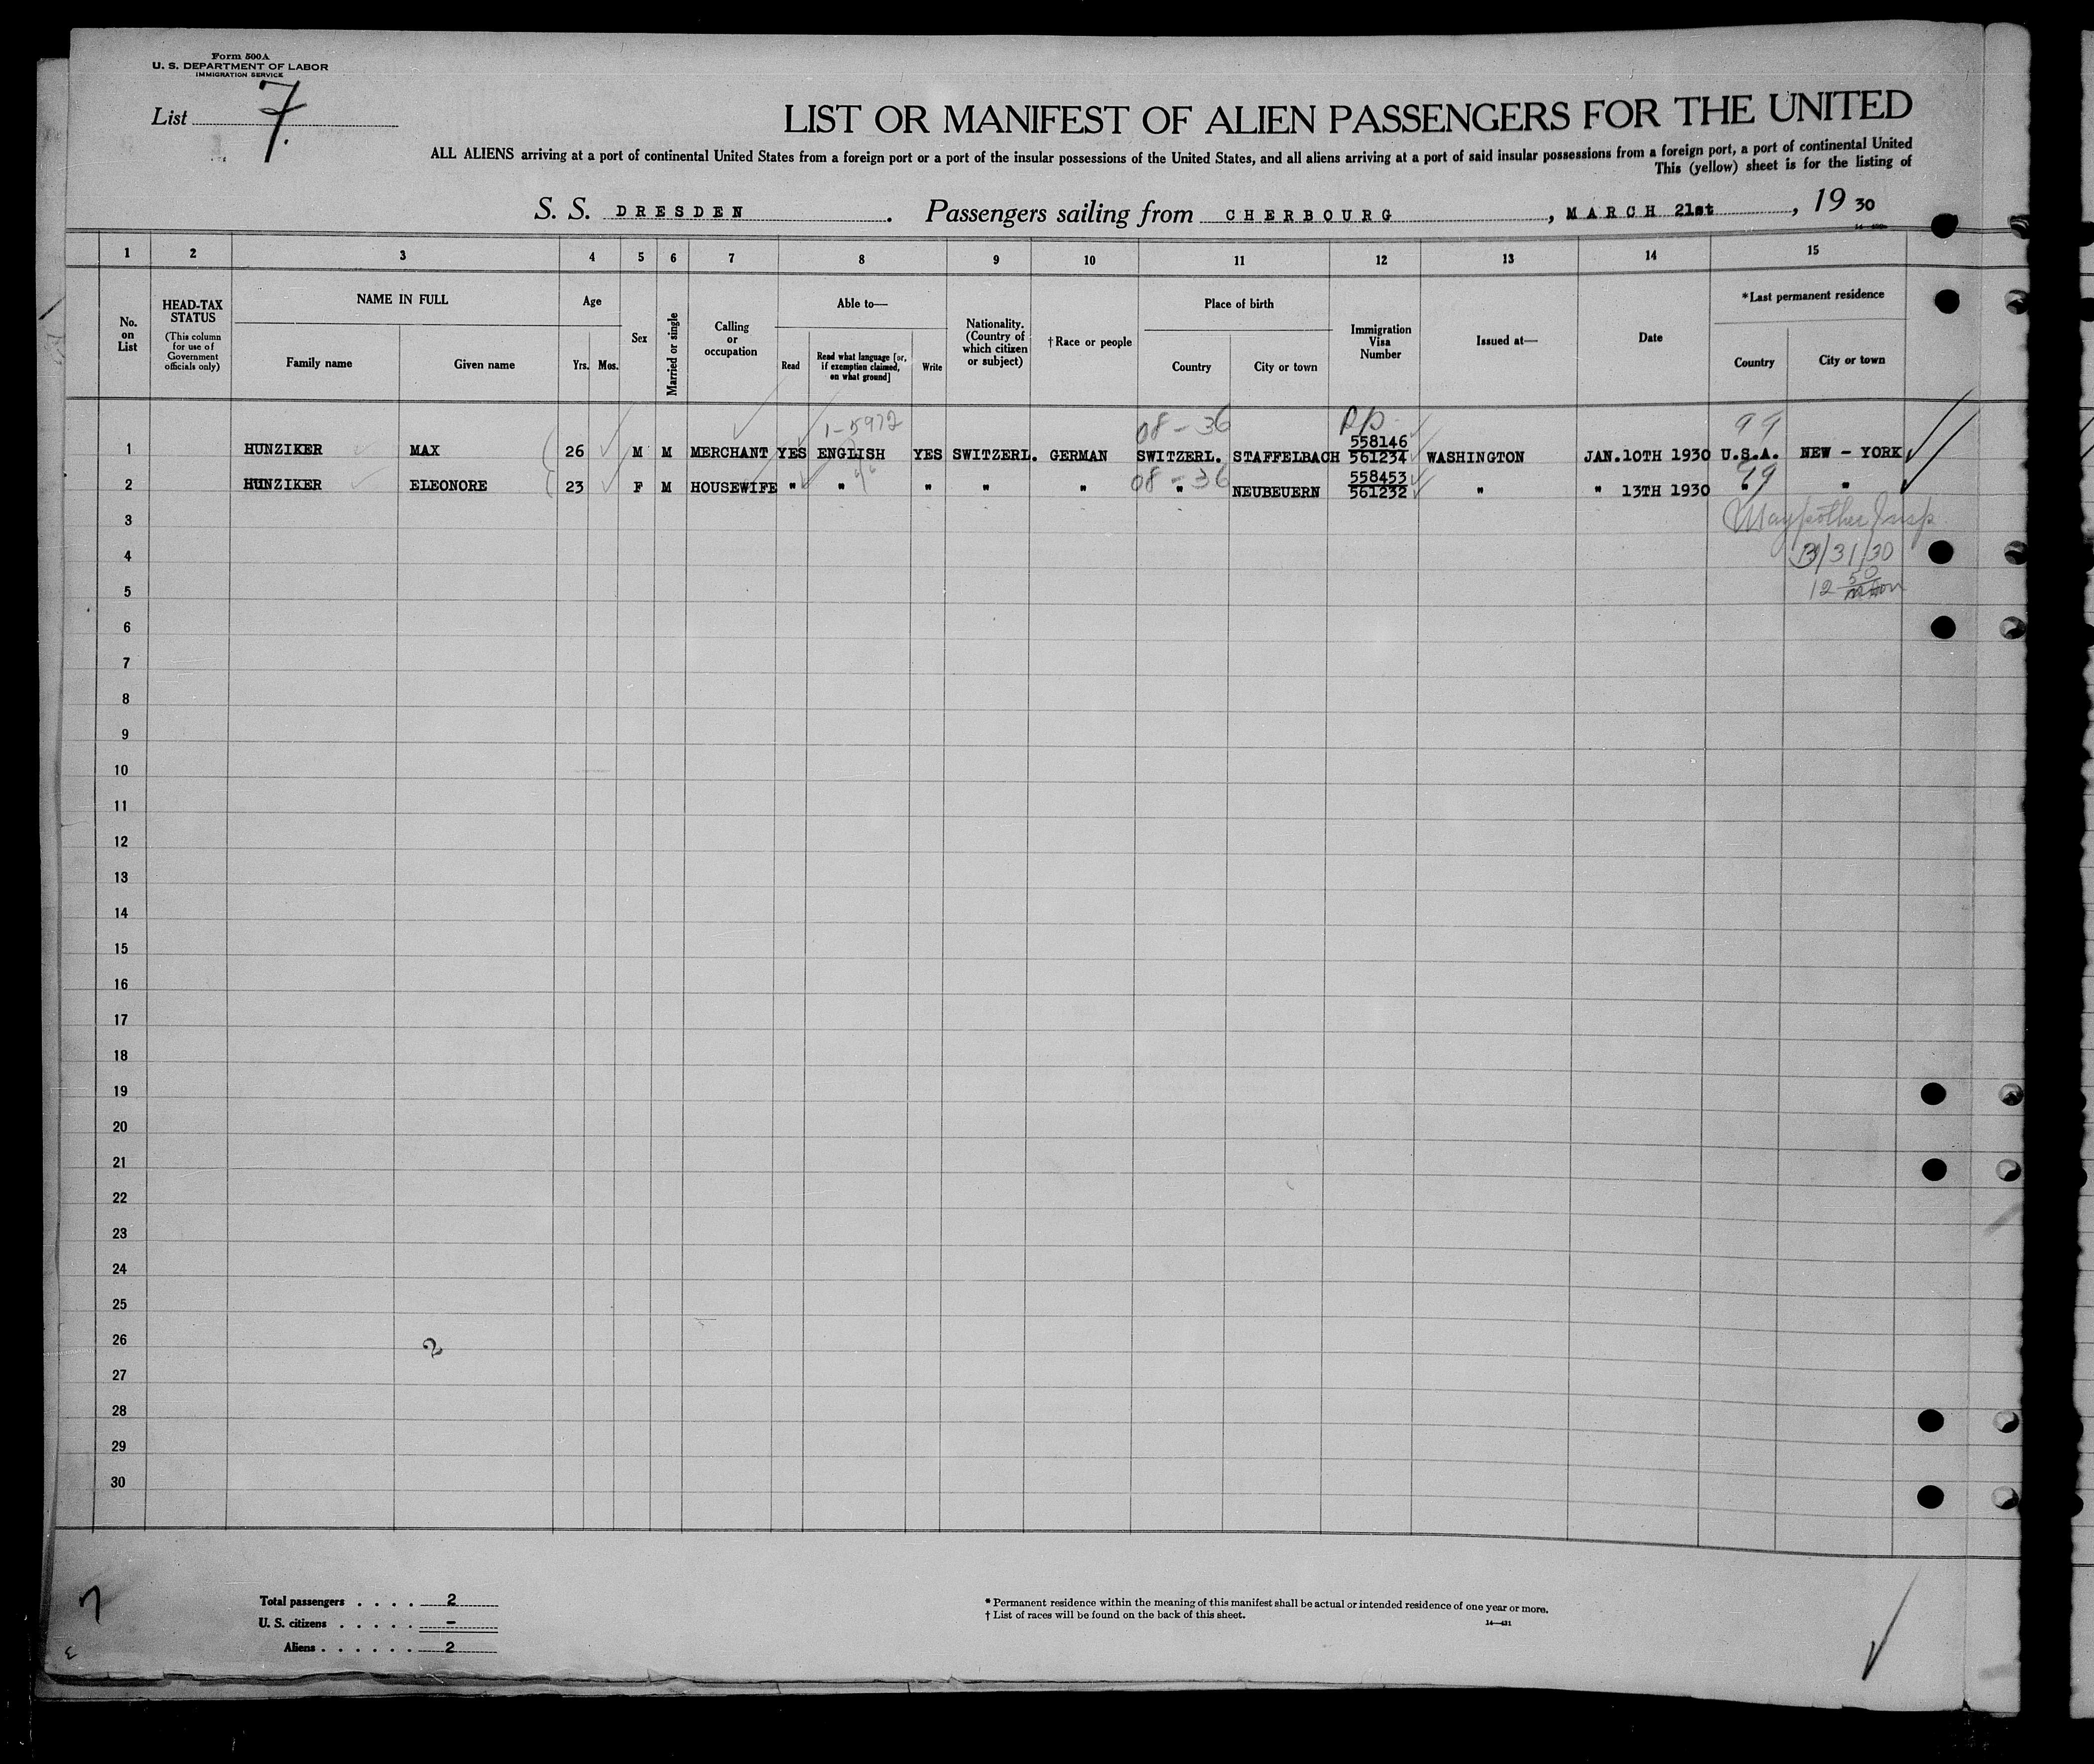 Form 500A
U. S. DEPARTMENT OF LABOR
IMMIGRATION SERVICE
List 7.
LIST OR MANIFEST OF ALIEN PASSENGERS FOR THE UNITED
ALL ALIENS arriving at a port of continental United States from a foreign port or a port of the insular possessions of the United States, and all aliens arriving at a port of said insular possessions from a foreign port, a port of continental United
This (yellow) sheet is for the listing of
S. S. DRESDEN. Passengers sailing from CHERBOURG, MARCH 21st, 19 30
1 2 3 4 5 6 7 8 9 10 11 12 13 14 15
No. on List
HEAD-TAX STATUS
(This column for use of Government officials only)
NAME IN FULL
Family name
Given name
Age
Yrs. Mos.
Sex
Married or single
Calling or occupation
Able to—
Read
Read what language [or, if exemption claimed, on what ground]
Write
Nationality. (Country of which citizen or subject)
†Race or people
Place of birth
Country
City or town
Immigration Visa Number
Issued at—
Date
*Last permanent residence
Country
City or town
1-5972 08-36 99
1 HUNZIKER MAX 26 M M MERCHANT YES ENGLISH YES SWITZERL. GERMAN SWITZERL. STAFFELBACH 558146 561234 WASHINGTON JAN.10TH 1930 U.S.A. NEW - YORK
08-36 99
2 HUNZIKER ELEONORE 23 F M HOUSEWIFE " " " " " " NEUBEUERN 558453 561232 " " 13TH 1930 " "
3
4 3/31/30
5 12 50
6
7
8
9
10
11
12
13
14
15
16
17
18
19
20
21
22
23
24
25
26 2
27
28
29
30
Total passengers . . . . 2
U. S. citizens . . . . . –
Aliens . . . . . . 2
* Permanent residence within the meaning of this manifest shall be actual or intended residence of one year or more.
† List of races will be found on the back of this sheet.